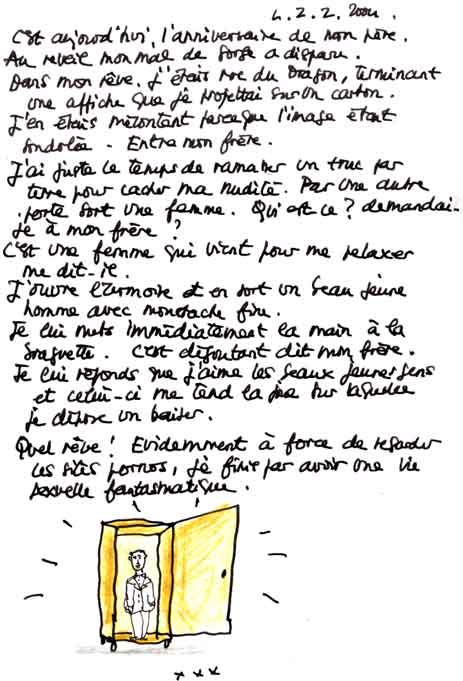 L. 2. 2. 2004.
C'est aujourd'hui, l'anniversaire de mon père.
Au reveil mon mal de gorge a disparu.
Dans mon rêve. J'étais rue du Dragon, terminant
une affiche que je projettai sur un carton.
J'en étais mécontent parceque l'image était
gondolée - Entra mon frère.
J'ai juste le temps de ramasser un truc par
terre pour cacher ma nudité. Par une autre
porte sort une femme. Qui est ce? demandai-
je à mon frère?
C'est une femme qui vient pour me relaxer
me dit-il.
J'ouvre l'armoire et en sort un beau jeune
homme avec moustache fine.
Je lui mets immédiatement la main à la
braguette. C'est dégoutant dit mon frère.
Je lui reponds que j'aime les beaux jeunes gens
et celui-ci me tend la joue sur laquelle
je dépose un baiser.
Quel rêve! Evidemment à force de regarder
les sites pornos, je finis par avoir une vie
sexuelle fantasmatique.
x x x